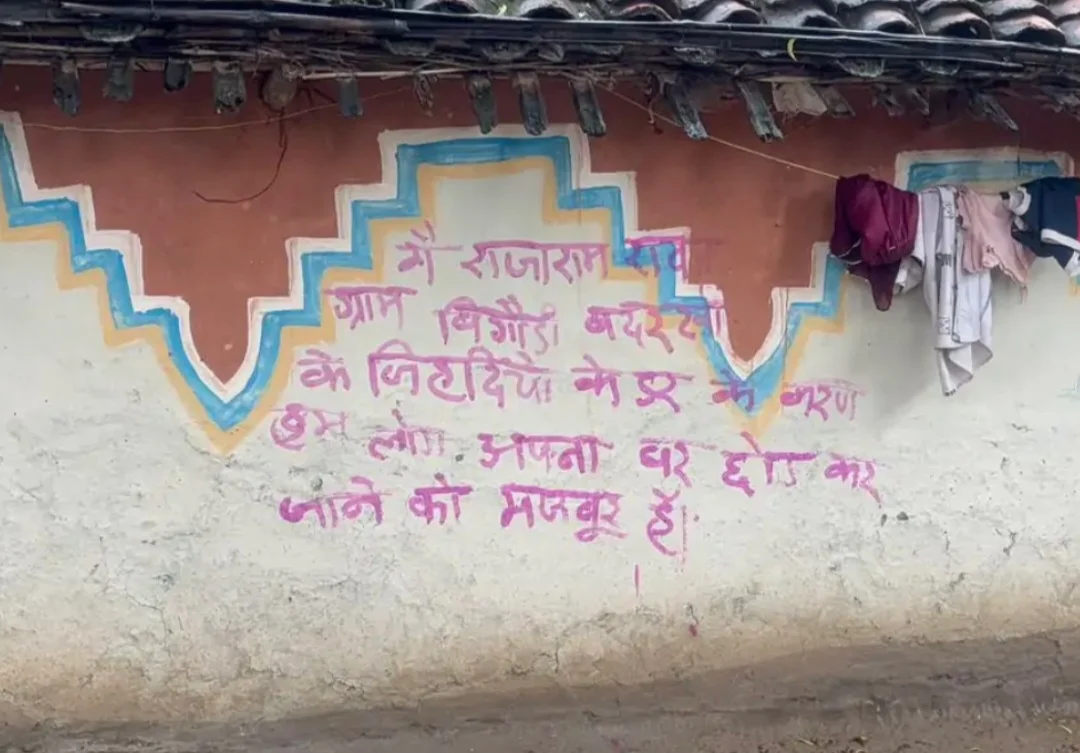 मै राजाराम रावत
ग्राम बिगौडी
के जिहादियो के डर के कारण
हम लोग अपना घर छोड कर
जाने को मजबूर हैं।